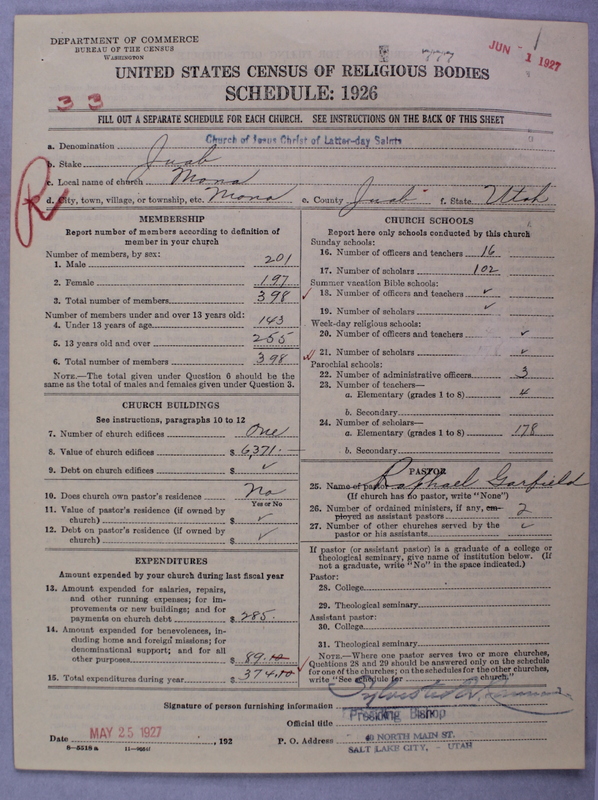 DEPARTMENT OF COMMERCE
BUREAU OF THE CENSUS
WASHINGTON
777
JUN - 1 1927
UNITED STATES CENSUS OF RELIGIOUS BODIES
SCHEDULE: 1926
3 3
FILL OUT A SEPARATE SCHEDULE FOR EACH CHURCH. SEE INSTRUCTIONS ON THE BACK OF THIS SHEET
a. Denomination Church of Jesus Christ of Latter-day Saints
b. Stake Juab
c. Local name of church Mona
R
d. City, town, village, or township, etc. Mona e. County Juab f. State Utah
MEMBERSHIP
Report number of members according to definition of
member in your church
Number of members, by sex:
1. Male 201
2. Female 197
3. Total number of members 398
Number of members under and over 13 years old:
4. Under 13 years of age 143
5. 13 years old and over 255
6. Total number of members 398
NOTE.—The total given under Question 6 should be the
same as the total of males and females given under Question 3.
CHURCH BUILDINGS
See instructions, paragraphs 10 to 12
7. Number of church edifices One
8. Value of church edifices $ 6,371.—
9. Debt on church edifices $ ✓
10. Does church own pastor's residence No
Yes or No
11. Value of pastor's residence (if owned by
church) $ ✓
12. Debt on pastor's residence (if owned by
church) $ ✓
EXPENDITURES
Amount expended by your church during last fiscal year
13. Amount expended for salaries, repairs,
and other running expenses; for im-
provements or new buildings; and for
payments on church debt $ 285.
14. Amount expended for benevolences, in-
cluding home and foreign missions; for
denominational support; and for all
other purposes $ 89.10
15. Total expenditures during year $ 374.10
CHURCH SCHOOLS
Report here only schools conducted by this church
Sunday schools:
16. Number of officers and teachers 16
17. Number of scholars 102
Summer vacation Bible schools:
18. Number of officers and teachers ✓
19. Number of scholars ✓
Week-day religious schools:
20. Number of officers and teachers ✓
21. Number of scholars ✓
Parochial schools:
22. Number of administrative officers 3
23. Number of teachers—
a. Elementary (grades 1 to 8) 4
b. Secondary
24. Number of scholars—
a. Elementary (grades 1 to 8) 178
b. Secondary
PASTOR
25. Name of pastor Raphael Garfield
(If church has no pastor, write "None")
26. Number of ordained ministers, if any, em-
ployed as assistant pastors 2
27. Number of other churches served by the
pastor or his assistants ✓
If pastor (or assistant pastor) is a graduate of a college or
theological seminary, give name of institution below. (If
not a graduate, write "No" in the space indicated.)
Pastor:
28. College
29. Theological seminary
Assistant pastor:
30. College
31. Theological seminary
NOTE.—Where one pastor serves two or more churches,
Questions 28 and 29 should be answered only on the schedule
for one of the churches; on the schedules for the other churches,
write "See schedule for church."
Signature of person furnishing information
Official title Presiding Bishop
Date MAY 25 1927, 192 P. O. Address 40 NORTH MAIN ST.
SALT LAKE CITY, - UTAH
8—5518a